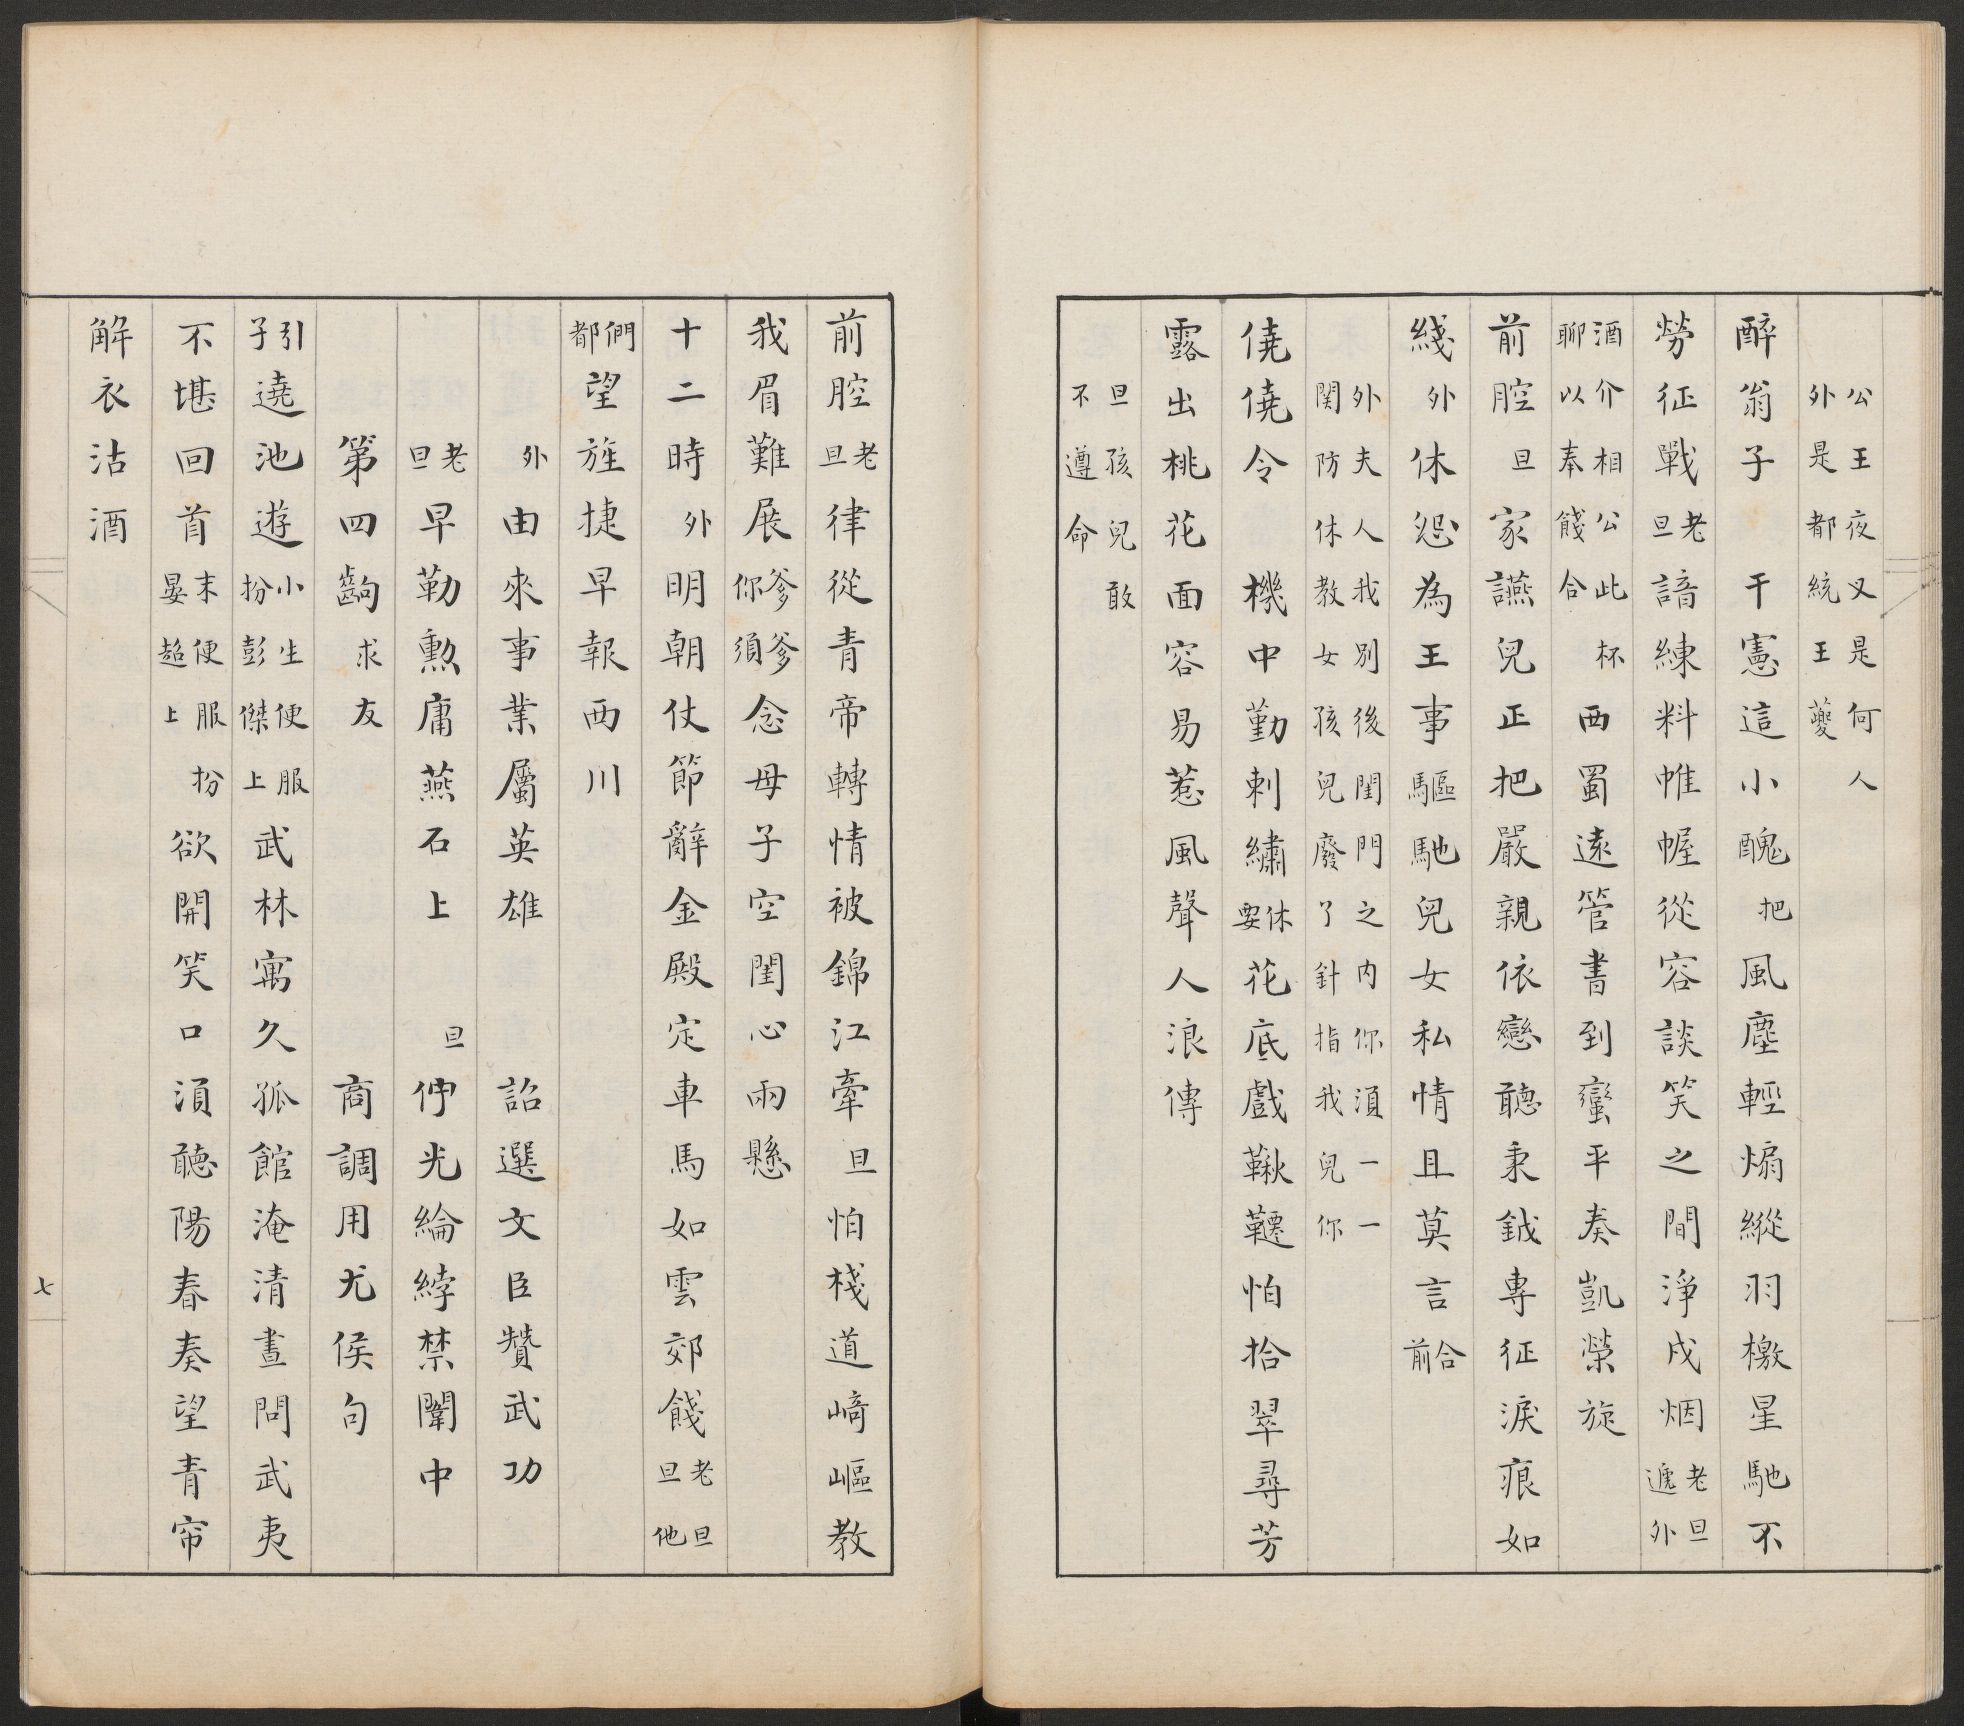 公王夜叉是何人外是都統王夔
醉翁子　干憲這小醜把風塵輕煽縱羽檄星馳不
勞征戰老旦諳練料帷幄從容談笑之間淨戍烟老旦遞外
酒介相公此杯聊以奉餞合西蜀遠管書到蠻平奏凱榮旋
前腔旦家讌兒正把嚴親依戀聽秉鉞專征淚痕如
綫外休怨為王事驅馳兒女私情且莫言合前
外夫人我別後閨門之内你湏一一関防休教女孩兒廢了針指我兒你
僥僥令　機中勤刺繡休要花底戲鞦韆怕拾翠尋芳
露出桃花面容易惹風聲人浪傳
旦孩兒敢不遵命
前腔老旦律從青帝轉情被錦江牽旦怕棧道﨑嶇教
我眉難展爹爹你須念母子空閨心兩懸
十二時外明朝仗節辭金殿定車馬如雲郊餞老旦旦他
們都望旌捷早報西川
外由來事業屬英雄　詔選文臣贊武功
老旦早勒勲庸燕石上　旦佇光綸綍禁闈中
第四齣　求友　商調用尤侯句
引子遶池遊小生便服扮彭傑上武林寓久孤館淹清晝問武夷
不堪回首末便服扮晏趂上欲開笑口湏聽陽春奏望青帘
解衣沽酒
七